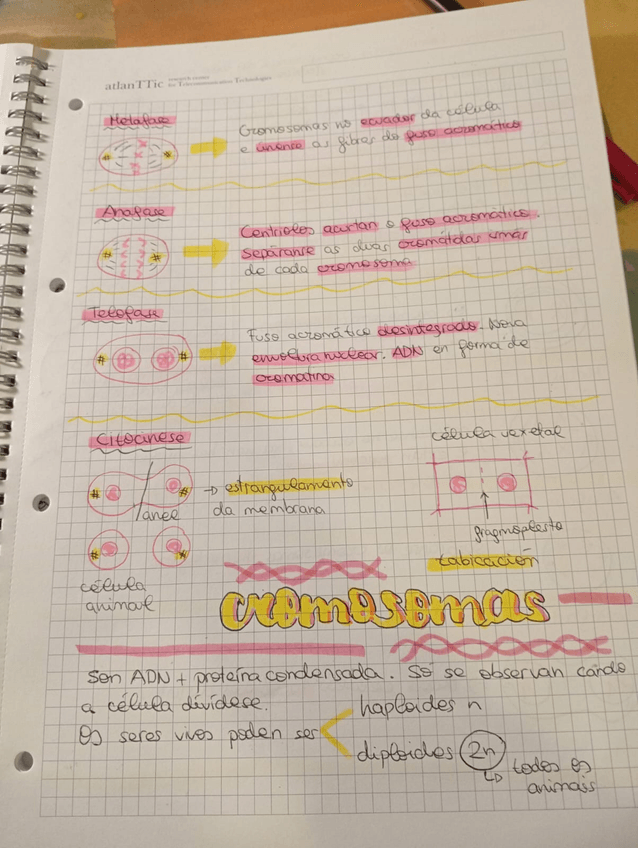 atlanTTic
Metafase
Cromosomas no ecuador da célula
e únense as fibras do fuso acromático
Anafase
Centriolos acurtan o fuso acromático.
Sepáranse as duas cromátidas irmás
de cada cromosoma
Telofase
Fuso acromático desintegrado. Nova
envoltura nuclear. ADN en forma de
cromatina
Citocinese
célula vexetal
→ estrangulamento
da membrana
anel
fragmoplasto
tabicación
célula
animal
cromosomas
Sen ADN + proteína condensada. Só se observan cando
a célula divídese.
Os seres vivos poden ser
haploides n
diploides 2n
↳ todos os
animais